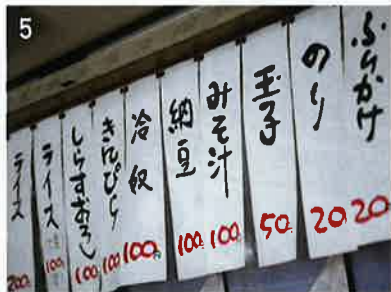 5
ふりかけ
20
のり
20
玉子
50
みそ汁
100
納豆
100
冷奴
100
きんぴら
100
しらすおろし
100
ライス
100
ライス
200